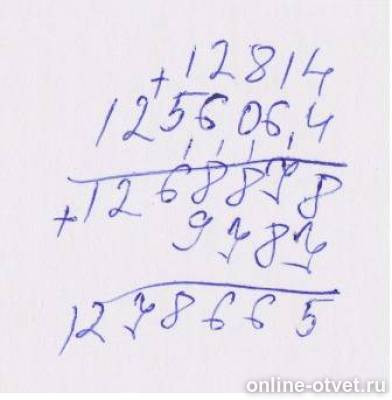 +12814
1256064
1 1 1 1
+1268878
9787
1278665
online-otvet.ru